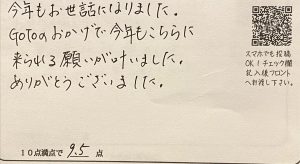 今年もお世話になりました。
GoToのおかげで今年もこちらに
来られる願いが叶いました。
ありがとうございました。
10点満点で 9.5 点
スマホでも投稿
OK!チェック欄
記入後フロント
へお渡し下さい。